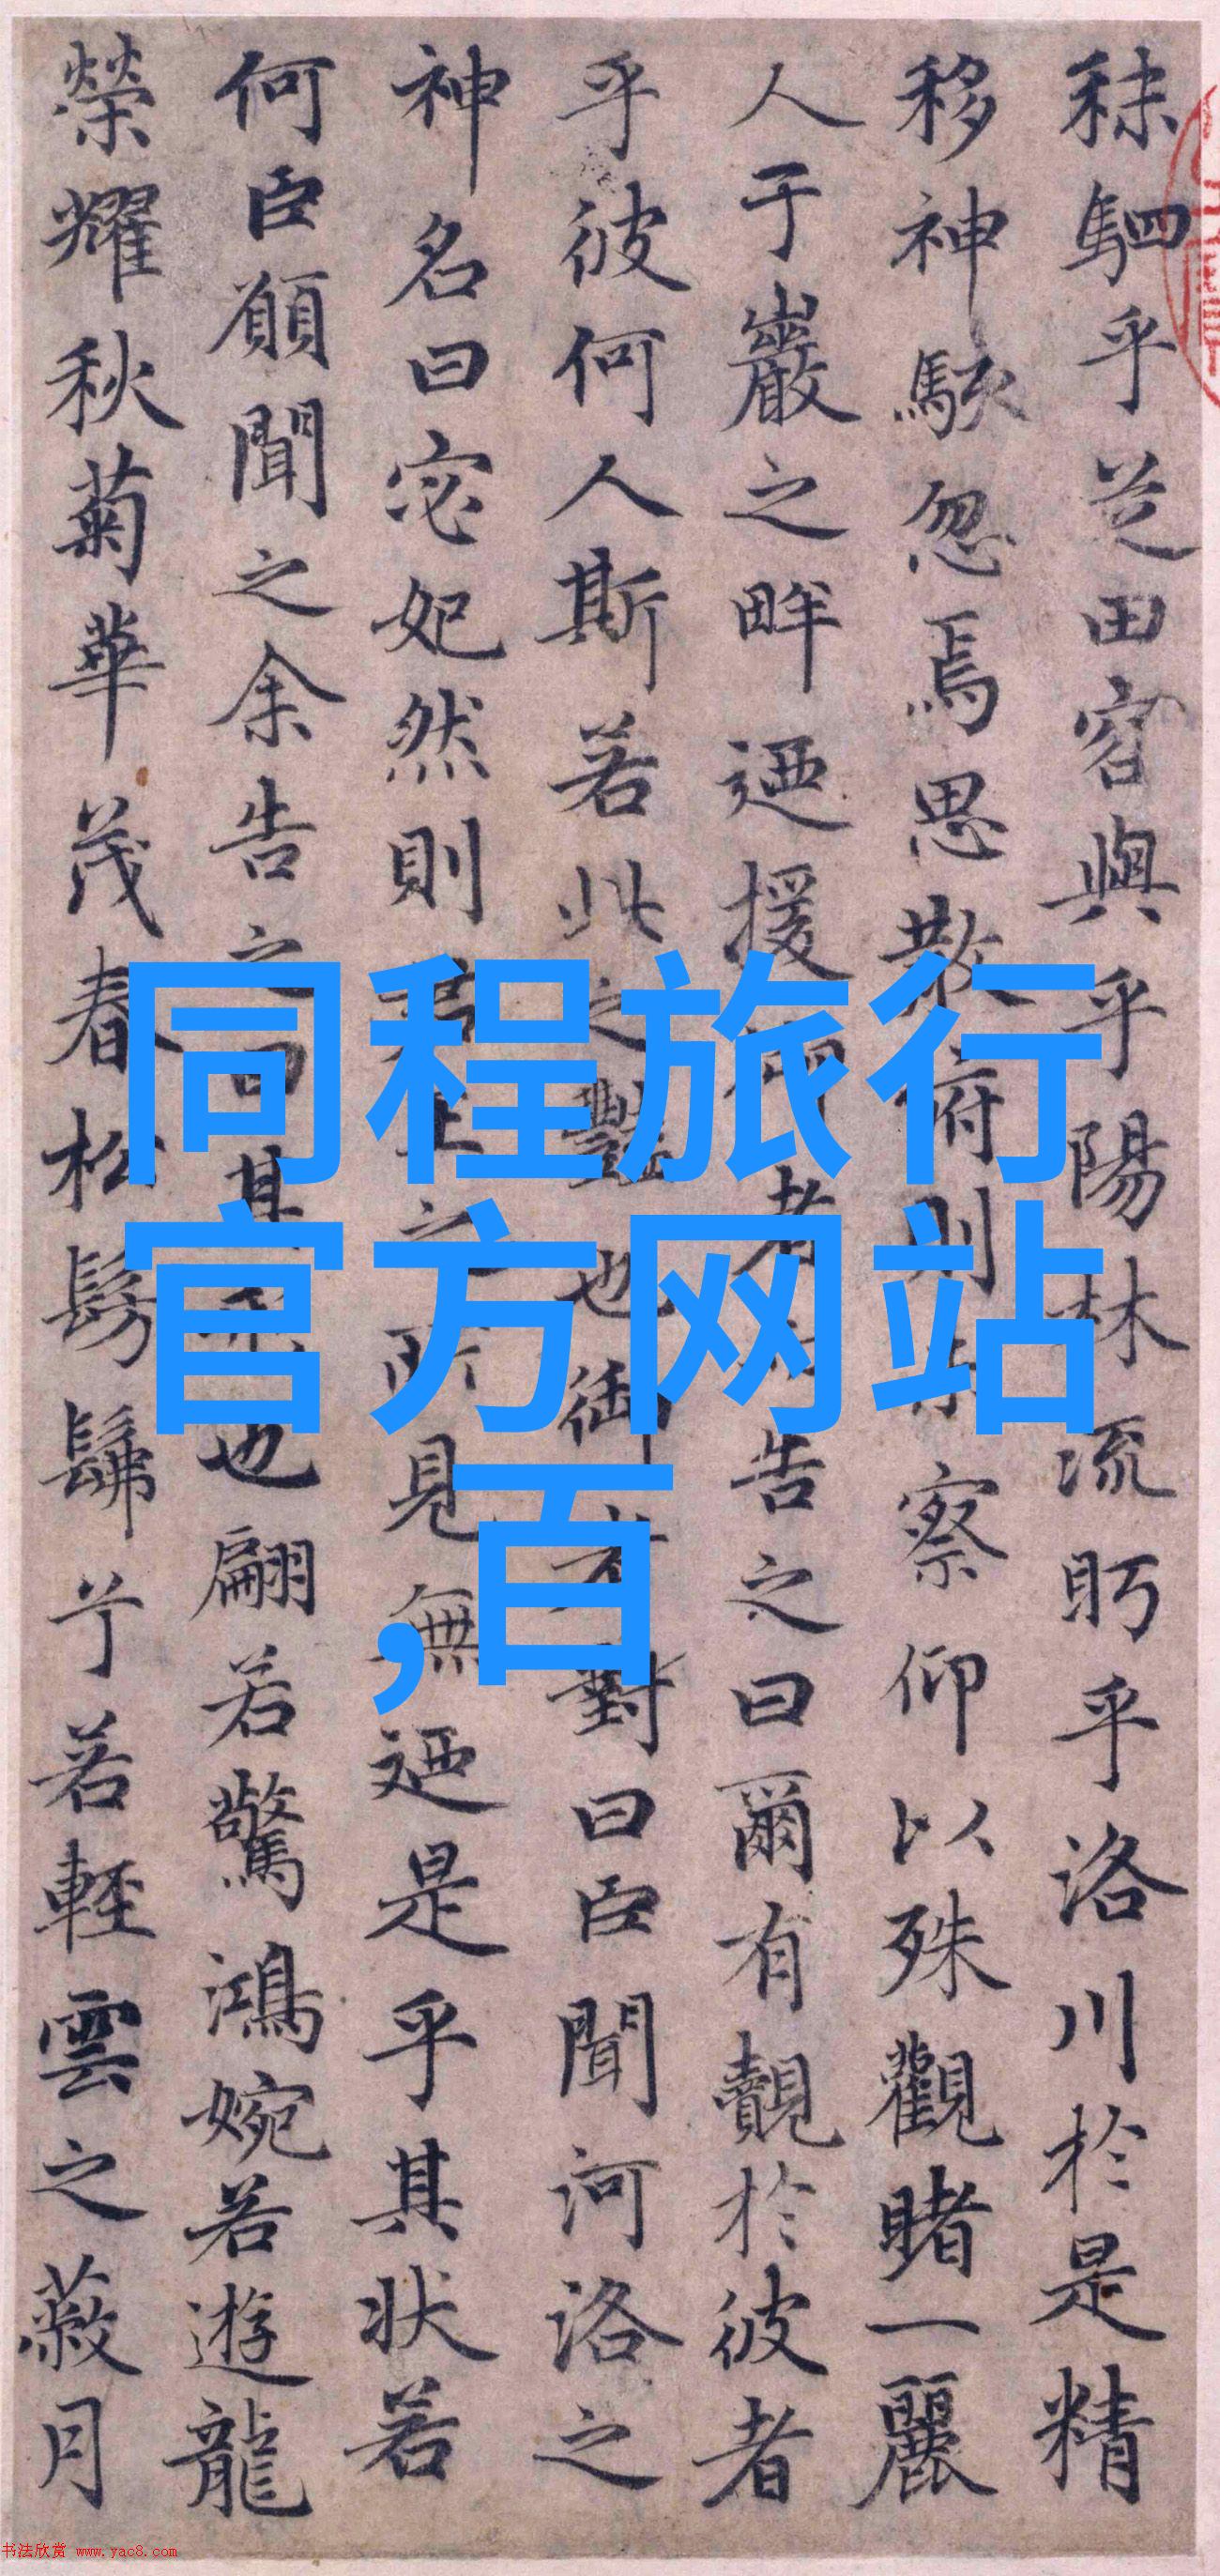 秣駟乎芝田容與乎陽林流眄乎洛川於是精
移神駭忽焉思散俯則察仰以殊觀睹一麗
人于巖之畔迺援者告之曰爾有覿於彼者
乎彼何人斯若此之豔也御對曰臣聞河洛之
神名曰宓妃然則之所見無迺是乎其狀若
何臣願聞之余告之曰其也翩若驚鴻婉若遊龍
榮耀秋菊華茂春松髣髴兮若輕雲之蔽月
同程旅行
官方网站
,百
书法欣赏 www.yac8.com